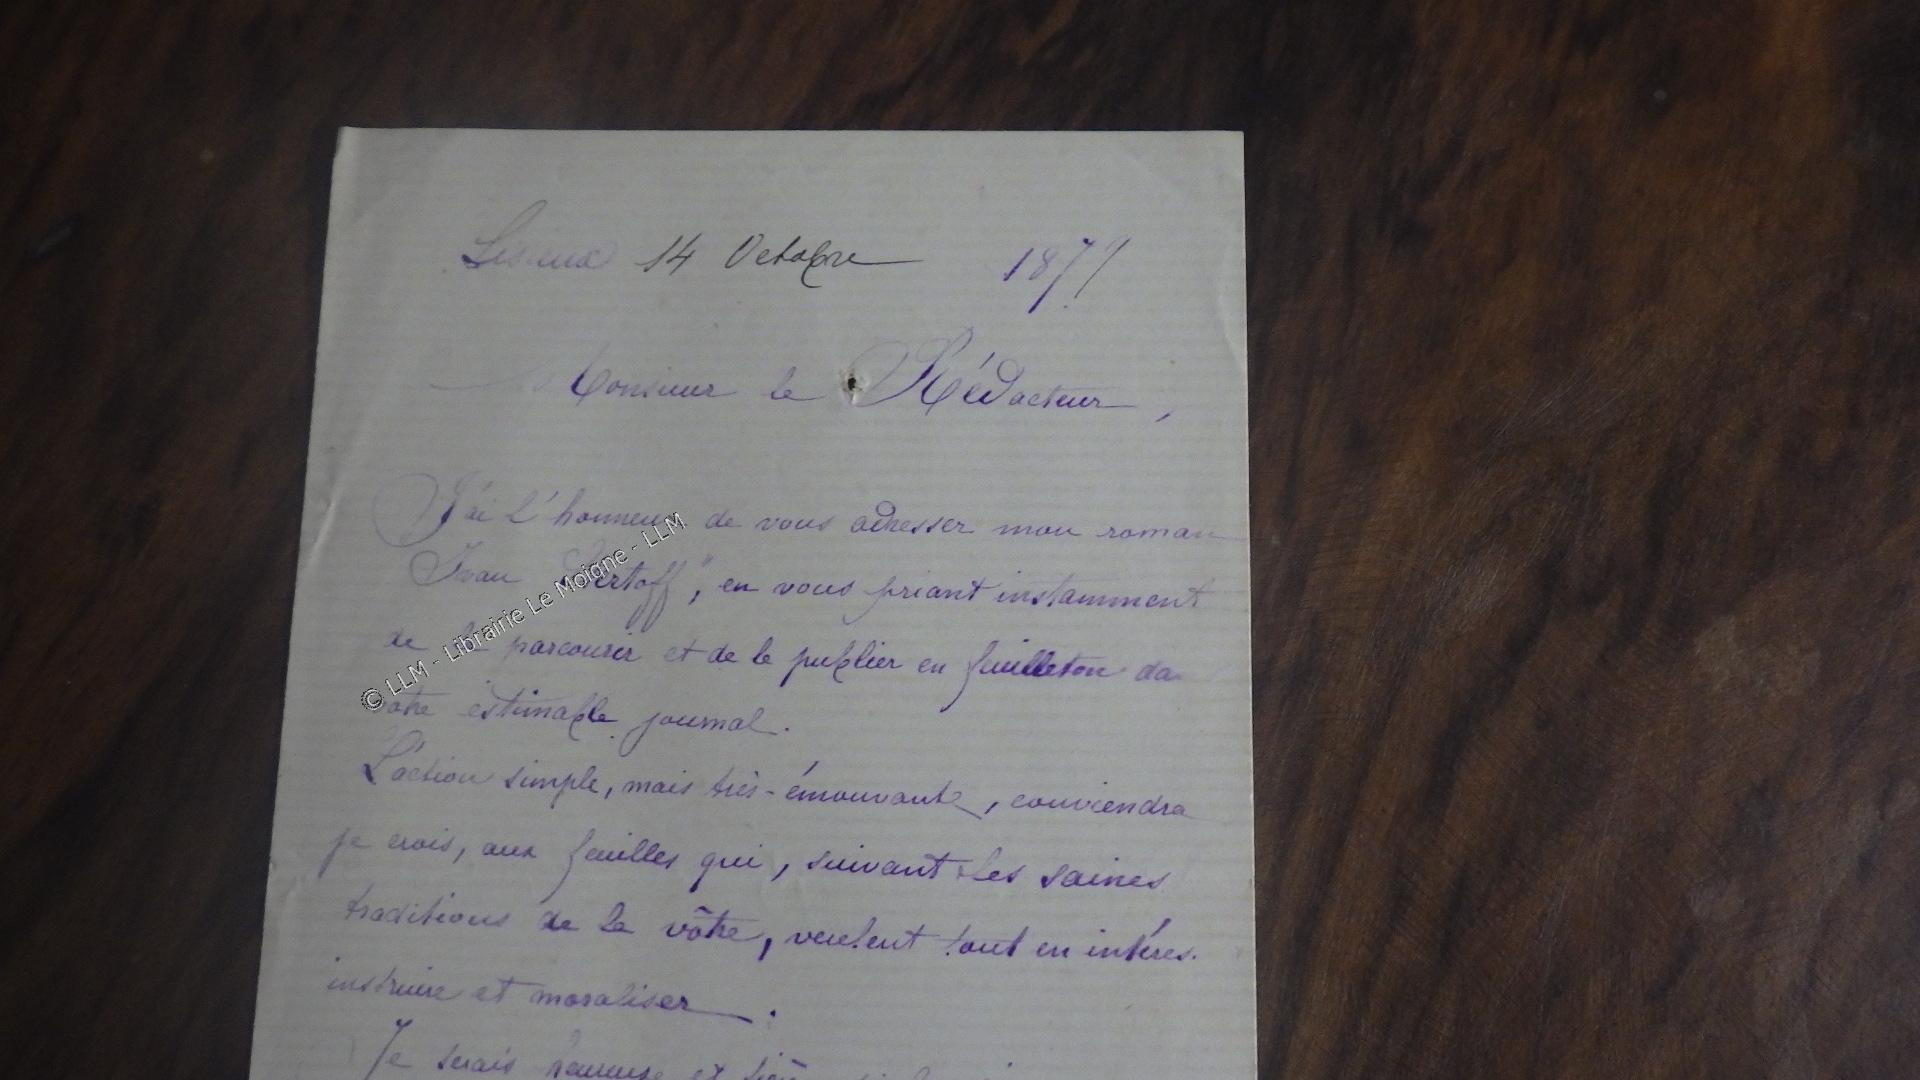 Lisieux 14 Octobre 1879
Monsieur le Rédacteur,
J'ai l'honneur de vous adresser mon roman
Ivan , en vous priant instamment
de le parcourir et de le publier en feuilleton da
otre estimable journal.
L'action simple, mais très-émouvante, conviendra
je crois, aux feuilles qui, suivant les saines
traditions de la vôtre, veulent tout en intéres.
instruire et moraliser.
Je serais heureuse et
© LLM - Librairie Le Moigne - LLM